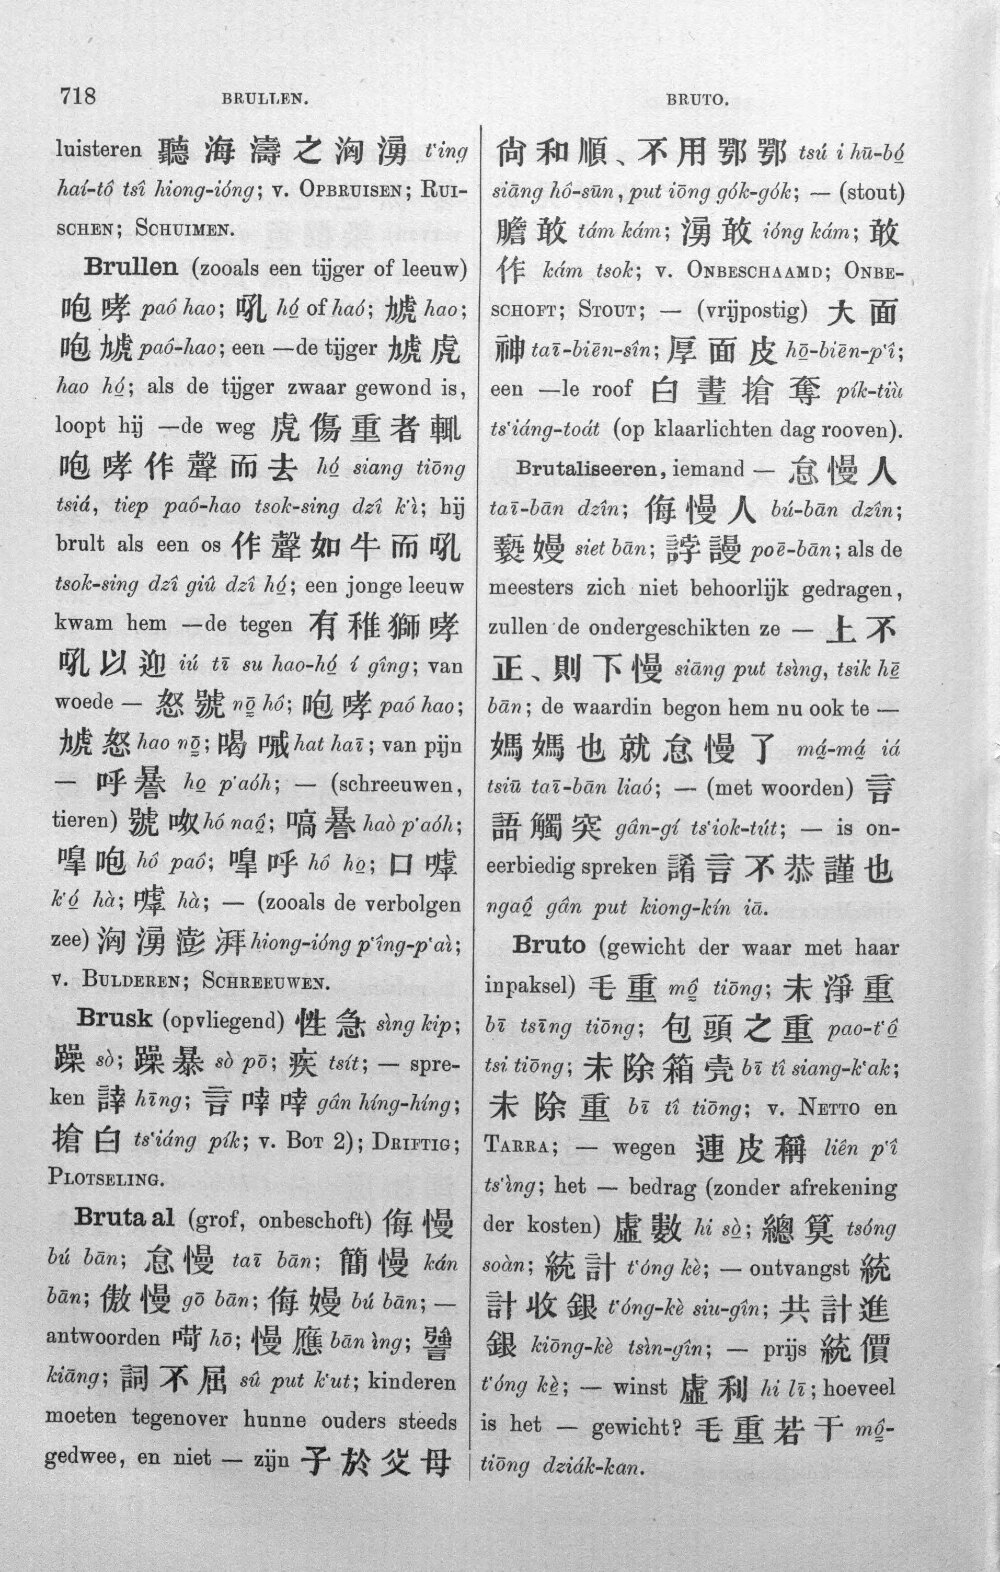 718
BRULLEN.
BRUTO.
luisteren 聽海濤之洶湧 t‘ing
hái-tô tsî hiong-ióng; v. OPBRUISEN; RUI-
SCHEN; SCHUIMEN.
Brullen (zooals een tijger of leeuw)
咆哮 paô hao; 吼 hó̤ of haó; 虓 hao;
咆虓 paô-hao; een —de tijger 虓虎
hao hó̤; als de tijger zwaar gewond is,
loopt hij —de weg 虎傷重者輒
咆哮作聲而去 hó̤ siang tiōng
tsiá, tiep paô-hao tsok-sing dzî k‘ì; hij
brult als een os 作聲如牛而吼
tsok-sing dzî giû dzî hó̤; een jonge leeuw
kwam hem —de tegen 有稚獅哮
吼以迎 iú tī su hao-hó̤ í gîng; van
woede — 怒號 nō̤ hô; 咆哮 paô hao;
虓怒 hao nō̤; 喝 hat haī; van pijn
— 呼謈 ho̤ p‘aóh; — (schreeuwen,
tieren) 號呶 hô naô̤; 嗃謈 haò p‘aóh;
嘷咆 hô paô; 嘷呼 hô ho̤; 口嘑
k‘ó̤ hà; 嘑 hà; — (zooals de verbolgen
zee) 洶湧澎湃 hiong-ióng p‘îng-p‘aì;
v. BULDEREN; SCHREEUWEN.
Brusk (opvliegend) 性急 sìng kip;
躁 sò; 躁暴 sò pō; 疾 tsít; — spre-
ken 誶 hīng; 言啈啈 gân híng-híng;
搶白 ts‘iáng pík; v. BOT 2); DRIFTIG;
PLOTSELING.
Brutaal (grof, onbeschoft) 侮慢
bú bān; 怠慢 taī bān; 簡慢 kán
bān; 傲慢 gō bān; 侮嫚 bú bān; —
antwoorden hō; 慢應 bān ìng;
kiāng; 詞不屈 sû put k‘ut; kinderen
moeten tegenover hunne ouders steeds
gedwee, en niet — zijn 子於父母
尙和順、不用鄂鄂 tsú i hū-bó̤
siāng hô-sūn, put iōng gók-gók; — (stout)
膽敢 tám kám; 湧敢 ióng kám; 敢
作 kám tsok; v. ONBESCHAAMD; ONBE-
SCHOFT; STOUT; — (vrijpostig) 大面
神 taī-biēn-sîn; 厚面皮 hō̤-biēn-p‘î;
een —le roof 白晝搶奪 pík-tiù
ts‘iáng-toát (op klaarlichten dag rooven).
Brutaliseeren, iemand — 怠慢人
taī-bān dzîn; 侮慢人 bú-bān dzîn;
褻嫚 siet bān; 誖謾 poē-bān; als de
meesters zich niet behoorlijk gedragen,
zullen de ondergeschikten ze — 上不
正、則下慢 siāng put tsìng, tsik hē̤
bān; de waardin begon hem nu ook te —
媽媽也就怠慢了 má̤-má̤ iá
tsiū taī-bān liaó; — (met woorden) 言
語觸突 gân-gí ts‘iok-tút; — is on-
eerbiedig spreken 誵言不恭謹也
ngaô̤ gân put kiong-kín iā.
Bruto (gewicht der waar met haar
inpaksel) 毛重 mô̤ tiōng; 未淨重
bī tsīng tiōng; 包頭之重 pao-t‘ô̤
tsi tiōng; 未除箱壳 bī tî siang-k‘ak;
未除重 bī tî tiōng; v. NETTO en
TARRA; — wegen 連皮稱 liên p‘î
ts‘ìng; het — bedrag (zonder afrekening
der kosten) 虛數 hi sò̤; 總算 tsóng
soàn; 統計 t‘óng kè; — ontvangst 統
計收銀 t‘óng-kè siu-gîn; 共計進
銀 kiōng-kè tsìn-gîn; — prijs 統價
t‘óng kè̤; — winst 虛利 hi lī; hoeveel
is het — gewicht? 毛重若干 mô̤-
tiōng dziák-kan.